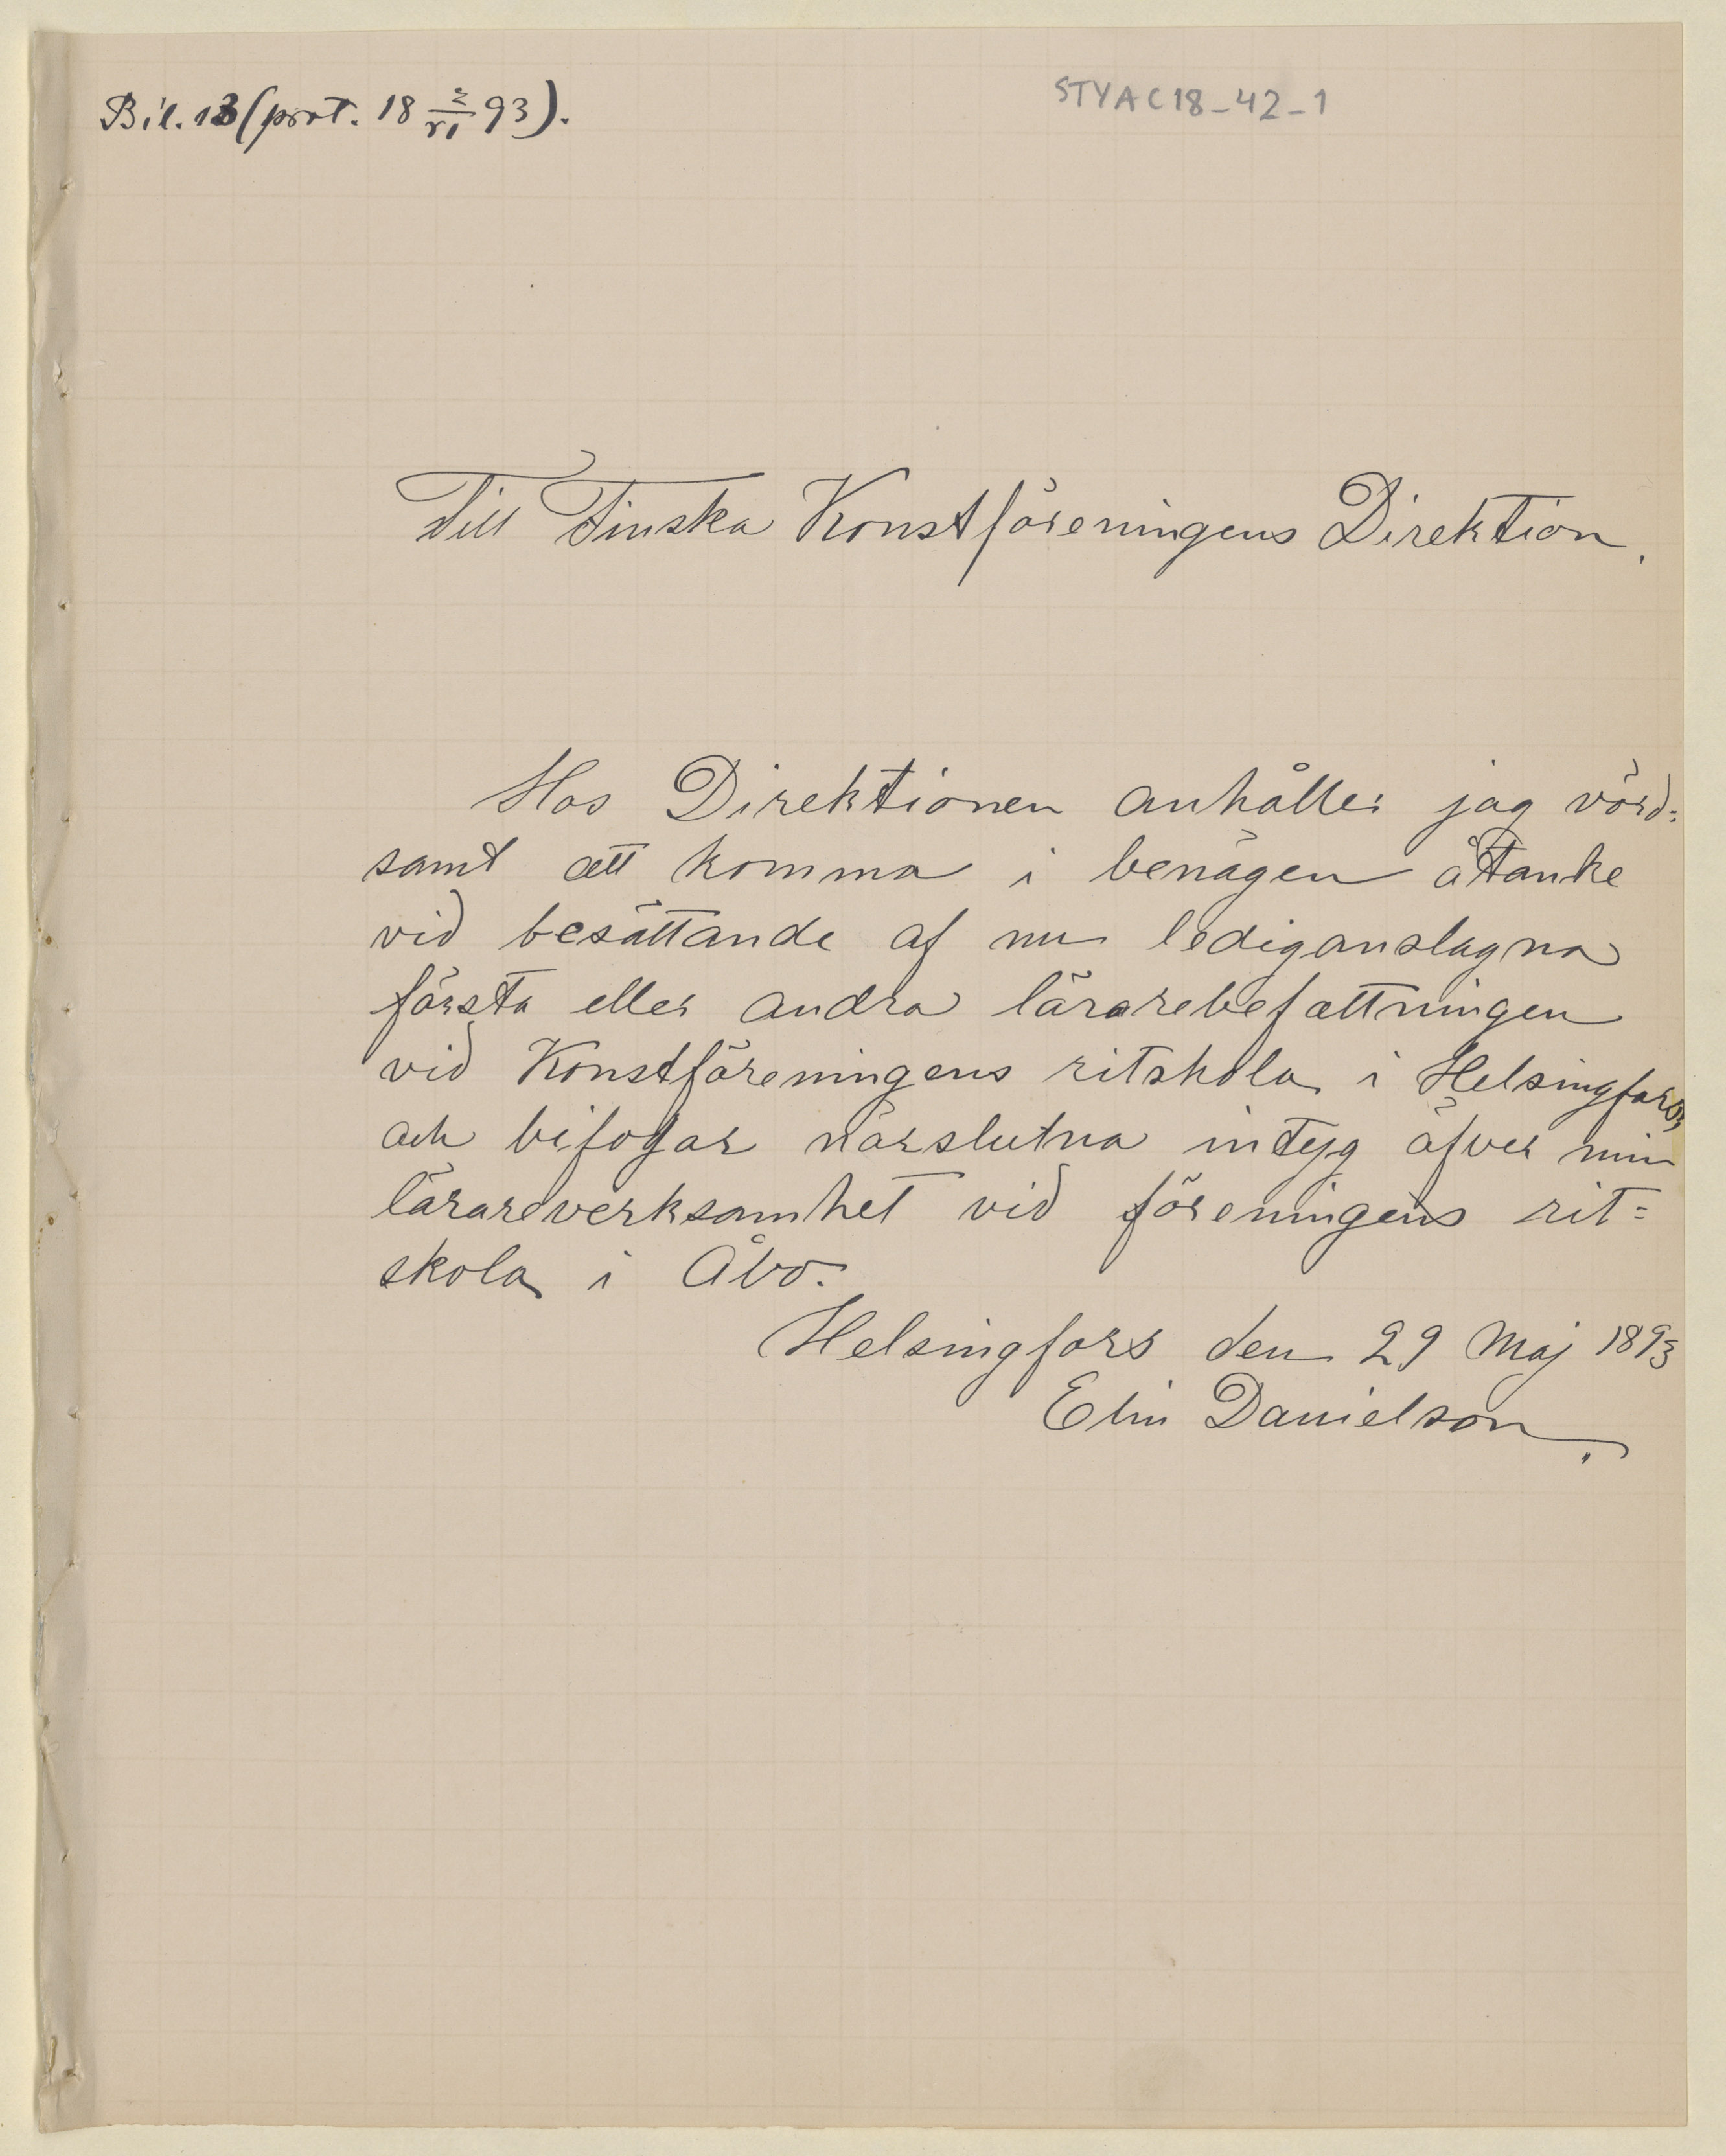 Bil. 13 (prot. 18 2/VI 93).
STYAC18-42-1
Till Finska Konstföreningens Direktion.
Hos Direktionen anhåller jag vörd=
samt att komma i benägen åtanke
vid besättande af nu lediganslagna
första eller andra lärarebefattningen
vid Konstföreningens ritskola i Helsingfors,
och bifogar närslutna intyg öfver min
lärareverksamhet vid föreningens rit=
skola i Åbo.
Helsingfors den 29 Maj 1893
Elin Danielson.